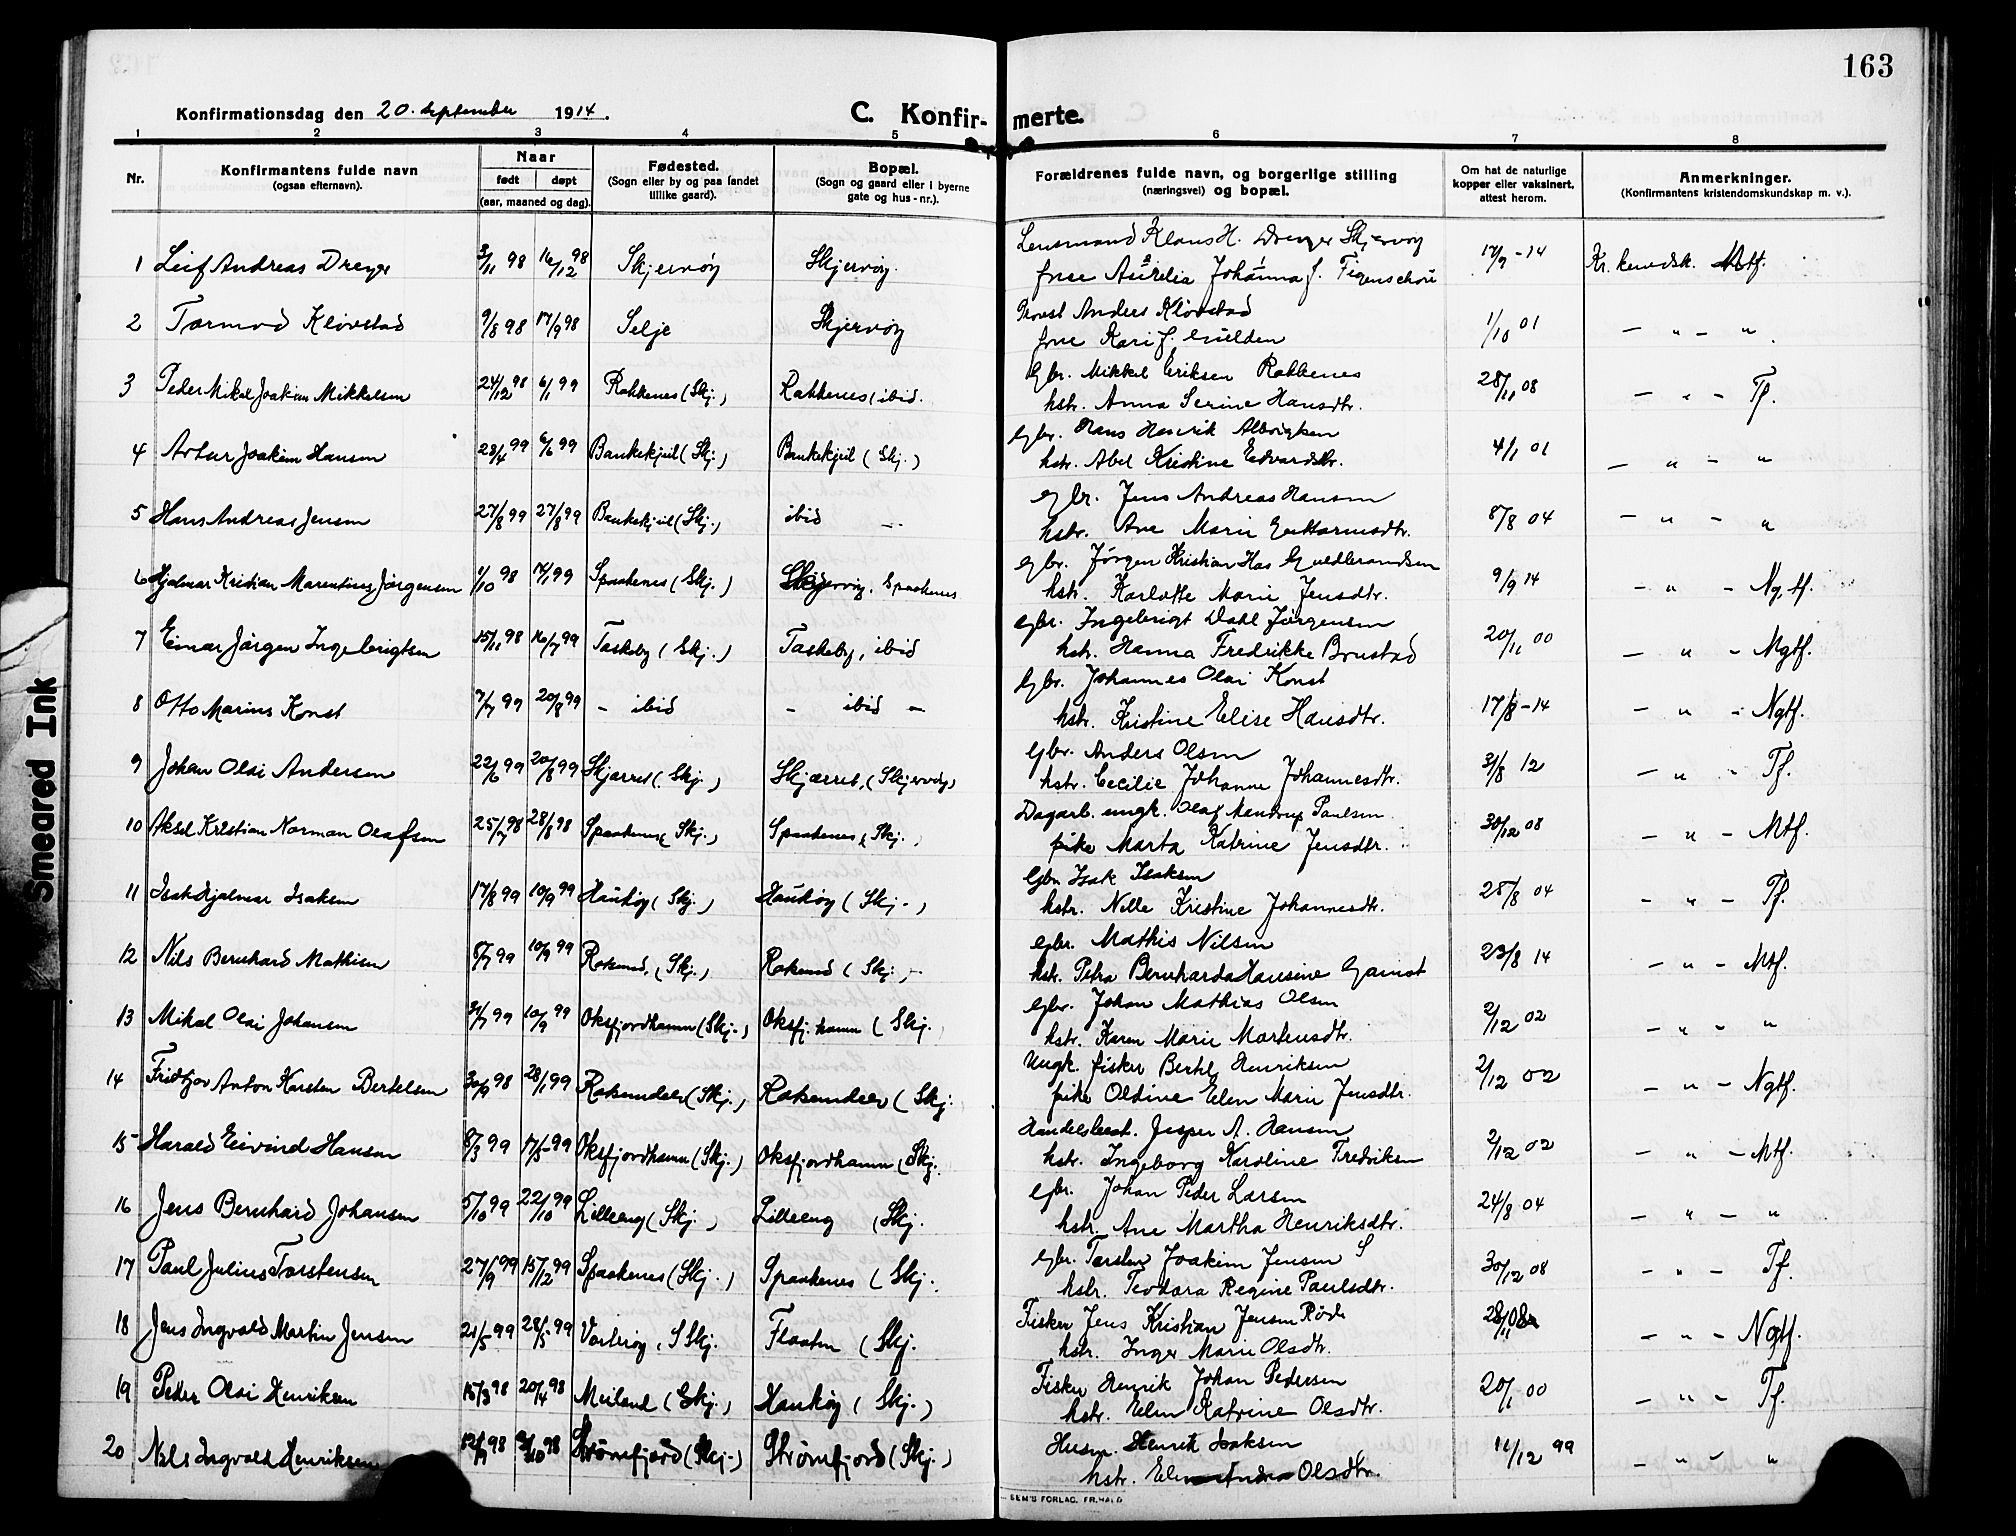 163
Konfirmationsdag den 20. september 1914.
C. Konfirmerte.
1 2 3 4 5 6 7 8
Nr.
Konfirmantens fulde navn
(ogsaa efternavn).
Naar
født døpt
(aar, maaned og dag).
Fødested.
(Sogn eller by og paa landet
tillike gaard).
Bopæl.
(Sogn og gaard eller i byerne
gate og hus-nr.).
Forældrenes fulde navn, og borgerlige stilling
(næringsvei) og bopæl.
Om hat de naturlige
kopper eller vaksinert,
attest herom.
Anmerkninger.
(Konfirmantens kristendomskundskap m. v.).
Lensmand Klaus H. Dreyer Skjervøy
1 Leif Andreas Dreyer 3/11 98 16/12 98 Skjervøy Skjervøy. 17/9-14 Kr. kundsk. Mtf.
frue Aurelia Johanna f. Figenschou
Provst Anders Kløvstad
2 Tormod Kløvstad 9/8 98 17/9 98 Selje Skjervøy 1/10 01 — " — "
frue Kari f. Gulden
Gbr. Mikkel Eriksen Rakkenes
3 Peder Mikal Joakim Mikkelsen 24/12 98 6/1 99 Rakkenes (Skj.) Rakkenes, ibid. 28/11 08 — " — Tf.
hstr. Anna Serine Hansdtr.
Gbr. Hans Henrik Albrigtsen
4 Artur Joakim Hansen 28/4 99 6/6 99 Bankekjeil (Skj.) Bankekjeil (Skj.) 4/1 01 — " — "
hstr. Abel Kristine Edvardsdtr.
Gbr. Jens Andreas Hansen
5 Hans Andreas Jensen 27/8 99 Bankekjeil (Skj.) ibid 8/8 04 — " — "
hstr. Ane Marie
Gbr. Jørgen Kristian Has Guldbrandsen
6 Hjalmar Kristian Marentius Jørgensen 1/10 98 Spaakenes (Skj.) Skjervøy, Spaakenes 9/9 14 — " — Ng. tf.
hstr. Karlotte Marie Jensdtr.
Gbr. Ingebrigt Dahl Jørgensen
7 Einar Jørgen Ingebrigtsen 15/11 98 16/7 99 Taskeby (Skj.) Taskeby, ibid 20/11 00 — " — Mgtf.
hstr. Hanna Fredrikke Brustad
Gbr. Johannes Olai Konst
8 Otto Marius Konst 7/7 99 20/8 99 – ibid – ibid – 17/8-14 — " — Ngtf.
hstr. Kristine Elise Hansdtr.
Gbr. Anders Olsen
9 Johan Olai Andersen 22/6 99 20/8 99 Skjærret (Skj.) Skjærret, (Skjervøy) 31/8 12 — " — Tf.
hstr. Cecilie Johanne Johannesdtr.
Dagarb. ungk. Olaf Mentrup Paulsen
10 Aksel Kristian Norman Olafsen 25/7 98 28/8 98 Spaakenes (Skj.) Spaakenes (Skj. 30/12 08 — " — Mtf.
pike Marta Katrine Jensdtr.
Gbr. Isak Isaksen
11 Isak Hjalmar Isaksen 17/8 99 10/9 99 Haukøy (Skj.) Haukøy (Skj.) 28/8 04 — " — Tf.
hstr. Nelle Kristine Johannesdtr.
Gbr. Mathis Nilsen
12 Nils Bernhard Mathisen 8/7 99 10/9 99 (Skj.) (Skj.) 23/8 14 — " — Mtf.
hstr. Petra Bernharda Hansine Gamst
Gbr. Johan Mathias Olsen
13 Mikal Olai Johansen 31/7 99 10/9 99 Oksfjordhamn (Skj.) Oksfj. hamn (Skj. 2/12 02 — " — "
hstr. Karen Marie Martensdtr.
Ungk. fisker Bertel Henriksen
14 Fridtjov Anton Karsten Bertelsen 30/9 98 28/1 99 Raksundelv (Skj.) Raksundelv (Skj. 2/12 02 — " — Ngtf.
pike Oldine Elen Marie Jensdtr.
Handelsbest. Jesper A. Hansen
15 Harald Eivind Hansen 8/3 99 17/5 99 Oksfjordhamn (Skj.) Oksfjordhamn (Skj. 2/12 02 — " — Mtf.
hstr. Ingeborg Karoline Fredriksen
Gbr. Johan Peder Larsen
16 Jens Bernhard Johansen 5/10 99 22/10 99 Lilleeng (Skj.) Lilleeng (Skj. 24/8 04 — " — "
hstr. Ane Martha Henriksdtr.
Gbr. Torsten Joakim Jensen S
17 Paul Julius Torstensen 27/9 99 15/12 99 Spaakenes (Skj.) Spaakenes (Skj. 30/12 08 — " — Tf.
hstr. Teodora Regine Paulsdtr.
Fisker Jens Kristian Jensen Røde
18 Jens Ingvald Martin Jensen 21/5 99 28/5 99 Vorterøy, S Skj. Flaaten (Skj. 28/11 08 — " — Ngtf.
hstr. Inger Marie Olsdtr.
Fisker Henrik Johan Pedersen
19 Peder Olai Henriksen 15/3 98 20/4 98 Meiland (Skj.) Haukøy (Skj.) 20/1 00 — " — Tf.
hstr. Elen Katrine Olsdtr.
Husm. Henrik Isaksen
20 Nils Ingvald Henriksen Strømfjord (Skj.) Strømfjord (Skj.) 11/12 99 — " — "
hstr. Elen Andrea Olsdtr.
SEM'S FORLAG, FR.HALD
Smeared Ink